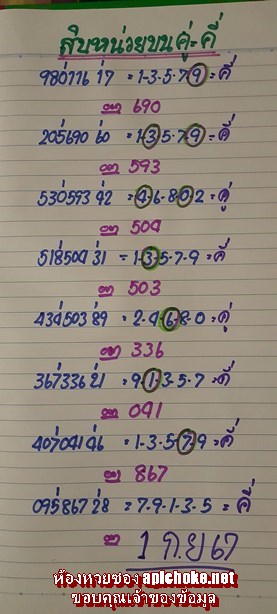 สิบหน่วยบนคู่=คี่
980776 17 = 1-3-5-7-9 = คี่
ออก 690
205690 60 = 1-3-5-7-9 = คี่
ออก 593
530593 42 = 4-6-8-0-2 = คู่
ออก 504
518504 31 = 1-3-5-7-9 = คี่
ออก 503
434503 89 = 2-4-6-8-0 = คู่
ออก 336
367336 21 = 9-1-3-5-7 = คี่
ออก 041
407041 46 = 1-3-5-7-9 = คี่
ออก 867
095867 28 = 7-9-1-3-5 = คี่
1 ก.ย 67
ห้องหวยซอง aplchoke.net
ขอบคุณเจ้าของข้อมูล